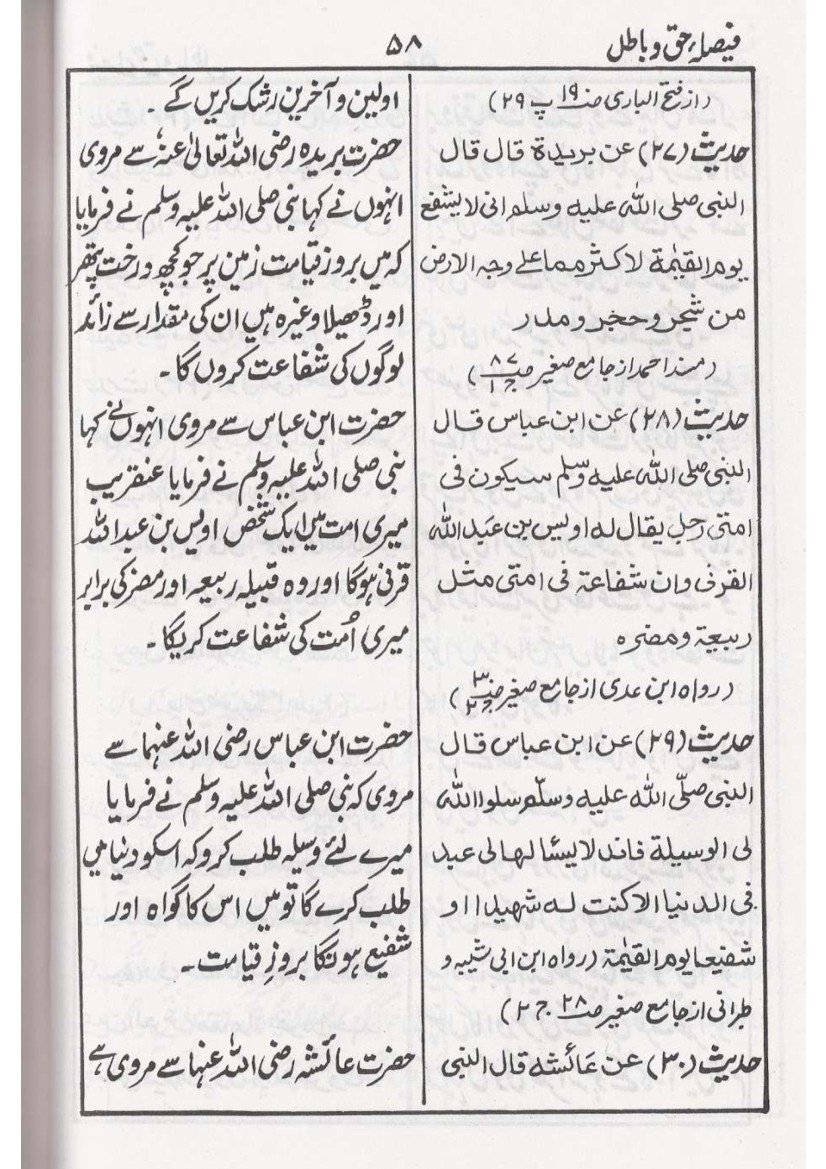 فیصلۂ حق و باطل
۵۸
(از فتح الباری صـ۱۹ پ ۲۹)
حدیث (۲۷) عن بریدۃ قال قال
النبی صلی اللہ علیہ وسلم انی لا یشفع
یوم القیٰمۃ لا کثر مما علی وجہ الارض
من شجر و حجر و مدر
(مسند احمد از جامع صغیر صـ۸۷ ج۱)
حدیث (۲۸) عن ابن عباس قال
النبی صلی اللہ علیہ وسلم سیکون فی
امتی رجل یقال لہ اویس بن عبد اللہ
القرف وان شفاعۃ فی امتی مثل
ربیعۃ و مضرہ
(رواہ ابن عدی از جامع صغیر صـ۳ ج۲)
حدیث (۲۹) عن ابن عباس قال
النبی صلّی اللہ علیہ وسلّم سلوا اللہ
لی الوسیلۃ فانہ لا یسئا لہا لی عبد
فی الدنیا الا کنت لہ شہیدا او
شفیعا یوم القیٰمۃ (رواہ ابن ابی شیبہ و
طبرانی از جامع صغیر صـ۲۸ ج۲)
حدیث (۳۰) عن عائشہ قال النبی
اولین و آخرین رشک کریں گے۔
حضرت بریدہ رضی اللہ تعالیٰ عنہٗ سے مروی
انہوں نے کہا نبی صلی اللہ علیہ وسلم نے فرمایا
کہ میں بروز قیامت زمین پر جو کچھ درخت پتھر
اور ڈھیلا وغیرہ ہیں ان کی مقدار سے زائد
لوگوں کی شفاعت کروں گا۔
حضرت ابن عباس سے مروی انہوں نے کہا
نبی صلی اللہ علیہ وسلم نے فرمایا عنقریب
میری امت میں ایک شخص اویس بن عبد اللہ
قرنی ہوگا اور وہ قبیلہ ربیعہ اور مضر کی برابر
میری اُمت کی شفاعت کریگا۔
حضرت ابن عباس رضی اللہ عنہما سے
مروی کہ نبی صلی اللہ علیہ وسلم نے فرمایا
میرے لئے وسیلہ طلب کرو کہ اسکو دنیا میں
طلب کرے گا تو میں اس کا گواہ اور
شفیع ہونگا بروزِ قیامت۔
حضرت عائشہ رضی اللہ عنہا سے مروی ہے